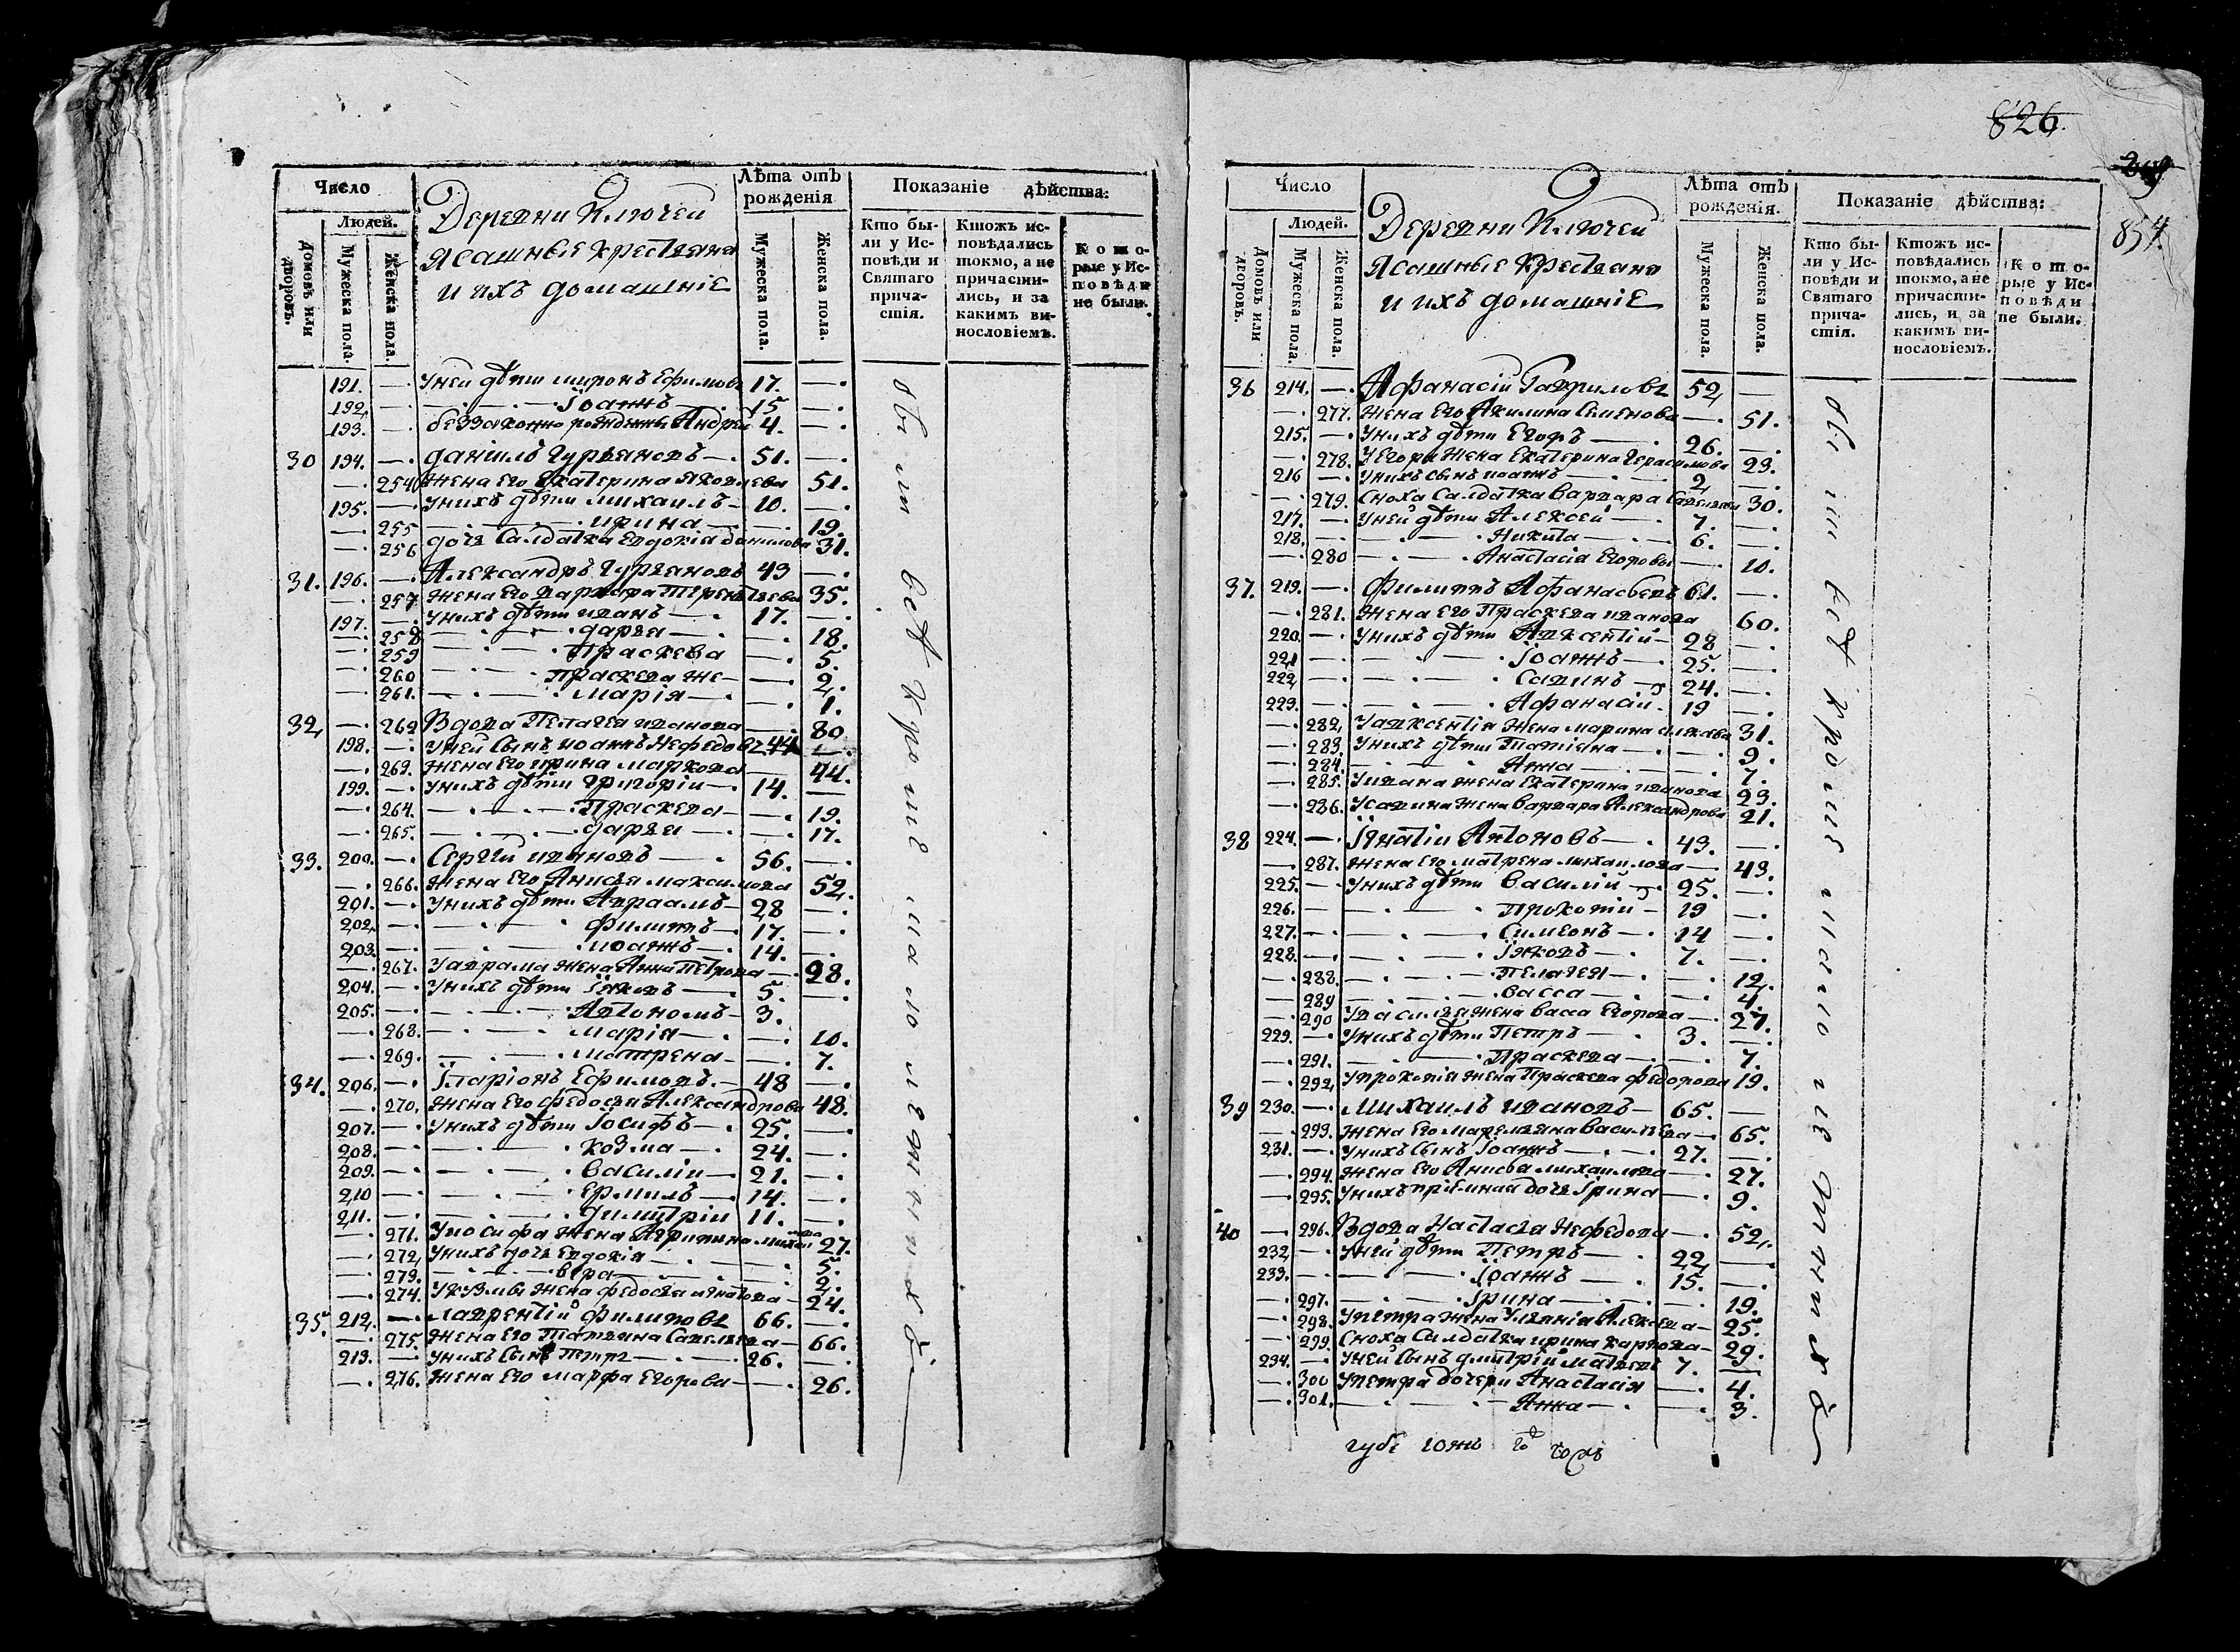 Число
Людей.
Домовъ или дворовъ.
Мужеска пола.
Женска пола.
Деревни Ключей
Ясашныя крестьяна
и ихъ домашнiе
Лѣта отъ рожденiя
Мужеска пола.
Женска пола.
Показанiе дѣйства:
Кто бы-
ли у Ис-
повѣди и
Святаго
прича-
стiя.
Ктожъ ис-
повѣдались
токмо, а не
причасти-
лись, и за
какимъ ви-
нословiемъ.
Кото-
рые у Ис-
повѣди
не были.
191. — У ней дѣти миронъ Ефимовъ 17. —
192. — Iоаннъ 15 —
193. — беззаконно рожденны Андрей 4. —
30 194. — данiилъ Гурьяновъ 51. —
— 254 Жена его Екатерина Яковлева 51.
195. — У нихъ дѣти михаилъ 10. —
— 255 ирина — 19.
— 256 дочь Салдатка Евдокiя данилова 31.
31. 196. — Александръ Гурьяновъ 43 —
— 257 Жена Его варвара Терентьева 35.
197. — У нихъ дѣти иванъ 17. —
— 258 дарья — 18.
— 259 Праскева — 5.
— 260 Праскева же — 2.
— 261. марiя — 1.
32 — 262 Вдова Пелагея иванова — 80
198. — У ней Сынъ иоаннъ Нефедовъ 44 —
— 263. Жена Его ирина маркова — 44.
199. — У нихъ дѣти Григорiи 14. —
— 264. Праскева — 19.
— 265. дарья — 17.
33. 200. — Сергiи ивановъ 56. —
— 266. Жена Его Анисья максимова 52.
201. — У нихъ дѣти Авраамъ 28 —
202. — филиппъ 17. —
203. — иоаннъ 14. —
— 267. У аврама жена Анна Петрова — 28.
204. — У нихъ дѣти Iяковъ 5. —
205. — Автономъ 3.
— 268. марiя — 10.
— 269. матрена — 7.
34. 206. — Iларiонъ Ефимовъ. 48 —
— 270. Жена Его федосья Александрова 48.
207. — У нихъ дѣти Iосифъ 25. —
208. — козма 24. —
209. — василiи 21. —
210 — Ермилъ 14. —
211. — димитрiи 11. —
— 271. У иосифа жена Агрипина михаилова 27.
— 272. У нихъ дочь Евдокiя — 5.
— 273. вера — 2.
— 274. У кузмы жена федосья игнатова — 24.
35. 212. — лаврентiй филиповъ 66. —
— 275. Жена Его Татьяна Савельева — 66.
213. — У нихъ Сынъ Петръ 26. —
— 276. Жена Его марфа Егорова — 26.
бы ли всѣ кроме мало летныхъ
826.
854.
Число
Людей.
Домовъ или дворовъ.
Мужеска пола.
Женска пола.
Деревни Ключей
Ясашные Крестьяна
и ихъ домашнiе
Лѣта отъ рожденiя.
Мужеска пола.
Женска пола.
Показанiе дѣйства:
Кто бы-
ли у Ис-
повѣди и
Святаго
прича-
стiя.
Ктожъ ис-
повѣдались
токмо, а не
причасти-
лись, и за
какимъ ви-
нословiемъ.
Кото-
рые у Ис-
повѣди
не были.
36 214. — Афанасiй Гавриловъ 52 —
— 277. Жена Его Акилина Семенова — 51.
215. — У нихъ дѣти Егоръ 26. —
— 278. У Егора Жена Екатерина Герасимова 23.
216 — У нихъ Сынъ иоаннъ 2 —
— 279. Сноха Салдатка варвара Савельева 30.
217. — У ней дѣти Алексей 7. —
218. — Никита 6. —
— 280 Анастасiа Егоровы — 10.
37. 219. — Филиппъ Афанасьевъ 61. —
— 281. Жена его Праскева иванова 60.
220. — У нихъ дѣти Авксентiй 28 —
221 — Iоаннъ 25. —
222 — Савинъ 24. —
223. — Афанасiи 19 —
— 282 У авксентiя Жена марина 31.
— 283. У нихъ дѣти Татiяна — 9.
— 284. Анна — 7.
— 285. У ивана жена Екатерина иванова 23.
— 286. У савина жена варвара Александрова 21.
38 224. — Iгнатiи Антоновъ 43. —
— 287. Жена его матрена михаилова — 43.
225. — У нихъ дѣти василiй 25. —
226. — Прокопiй 19 —
227. — Симеонъ 14 —
228. — Iяковъ 7. —
— 288. Пелагея — 12.
— 289 васса — 4.
— 290 У василья жена васса Егорова — 27.
229. — У нихъ дѣти Петръ 3. —
— 291. Праскева — 7.
— 292 У прокопiя жена Праскева федорова 19.
39 230. — Михаилъ ивановъ 65. —
— 293. Жена Его маремьяна васильева — 65.
231. — У нихъ Сынъ Iоаннъ 27. —
— 294. Жена Его Анисья михаилова — 27.
— 295. У нихъ прiемная дочь Iрина — 9.
40 — 296. Вдова Настасья Нефедова — 52.
232. — У ней дѣти Петръ 22 —
233. — Iоаннъ 15. —
— 297. Iрина — 19.
— 298. У петра жена Ульянiа Алексева — 25.
— 299. Сноха Салдатка ирина карпова — 29.
234. — У ней Сынъ дмитрiй матвевъ 7. —
— 300 У петра дочери Анастасiя — 4.
— 301. Анна — 3.
бы ли всѣ кроме мало летныхъ